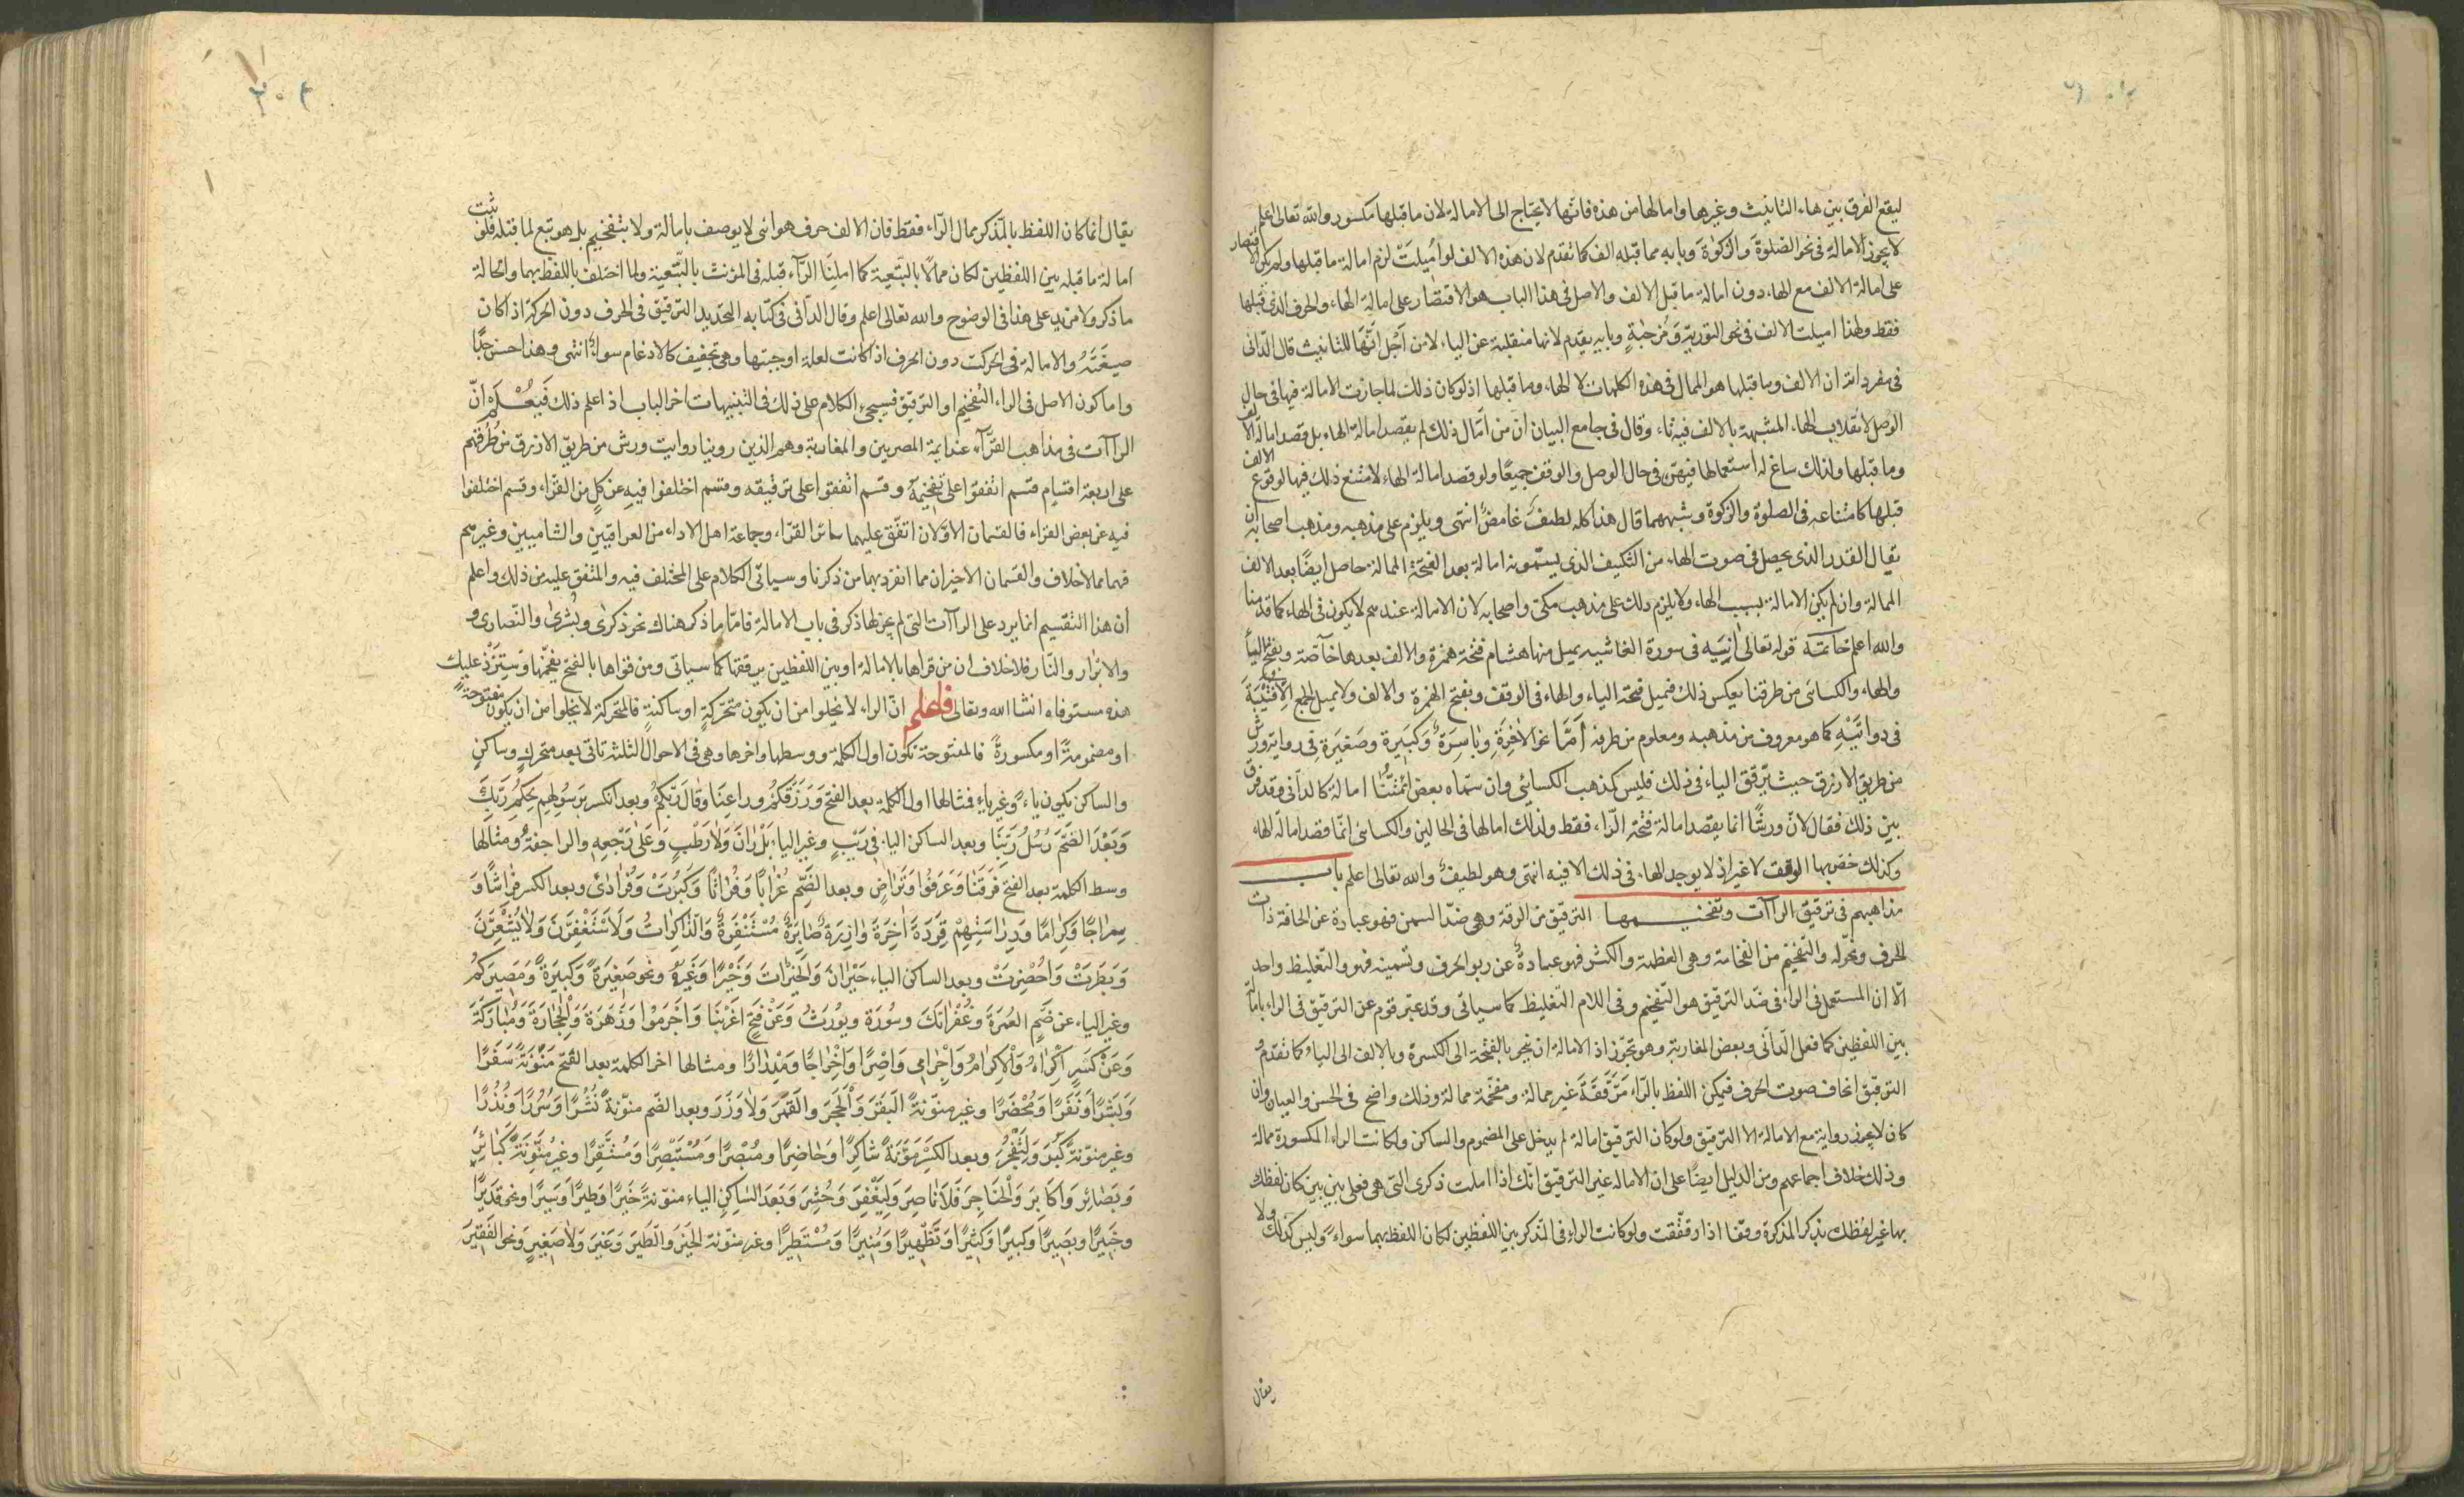 ليقع الفرق بين هاء التانيث وغيرها واما لها من هذه فانها لا يحتاج الى الامالة لان ما قبلها مكسور والله تعالى اعلم
لا يجوز الامالة فى نحو الصلوة والزكوة وبابه مما قبله الف كما تقدم لان هذه الالف لو اميلت لزم امالة ما قبلها ولم يكن الاقتصار
على امالة الالف مع الهاء دون امالة ما قبل الالف والاصل فى هذا الباب هو الاقتصار على امالة الهاء والحرف الذى قبلها
فقط ولهذا اميلت الالف فى نحو التورية ومزجية وبابه يقدم لانها منقلبة عن الياء لا من اجل انها للتانيث قال الدانى
فى مفرداته ان الالف وما قبلها هو الممال فى هذه الكلمات لا الهاء وما قبلها اذ لو كان ذلك لما جازت الامالة فيها فى حال
الوصل لانقلاب الهاء المشبهة بالالف فيه تاء وقال فى جامع البيان ان من امال ذلك لم يقصد امالة الهاء بل قصد امالة الالف
وما قبلها ولذلك ساغ له استعمالها فيهن فى حال الوصل والوقف جميعا ولو قصد امالة الهاء لامتنع ذلك فيها لوقوع الالف
قبلها كامتناعه فى الصلوة والزكوة وشبههما قال هذا كله لطيف غامض انتهى ويلزم على مذهبه ومذهب اصحابه ان
يقال القدر الذى يحصل فى صوت الهاء من التكييف الذى يسمونه امالة بعد الفتحة الممالة حاصل ايضا بعد الالف
الممالة وان لم يكن الامالة بسبب الهاء ولا يلزم ذلك على مذهب مكى واصحابه لان الامالة عندهم لا يكون فى الهاء كما قدمنا
والله اعلم خاتمة قوله تعالى انية فى سورة الغاشية يميل منها هشام فتحة همزة والالف بعدها خاصة ويفتح الياء
والهاء والكسائى من طرقنا يعكس ذلك فيميل فتحة الياء والهاء فى الوقف ويفتح الهمزة والالف ولا يميل الجمع الا قتيبة
فى روايته كما هو معروف من مذهبه ومعلوم من طرقه اما نحو الاخرة وباسرة وكبيرة وصغيرة فى رواية ورش
من طريق الازرق حيث يرقق الياء فى ذلك فليس كمذهب الكسائى وان سماه بعض ائمتنا امالة كالدانى وقد فرق
بين ذلك فقال لان ورشا انما يقصد امالة فتحة الراء فقط ولذلك امالها فى الحالين والكسائى انما قصد امالة الهاء
وكذلك خص بها الوقف لا غير اذ لا يوجد الهاء فى ذلك الا فيه انتهى وهو لطيف والله تعالى اعلم باب
مذاهبهم فى ترقيق الراآت وتفخيمها الترقيق من الرقة وهى ضد السمن فهو عبارة عن انحافة ذات
الحرف ونحوله والتفخيم من الفخامة وهى العظمة والكثر فهو عبادة عن ربو الحرف وتسمينه فهو والتغليظ واحد
الا ان المستعمل فى الراء فى ضد الترقيق هو التفخيم وفى اللام التغليظ كما سياتى وقد عبر قوم عن الترقيق فى الراء بامالة
بين اللفظين كما فعل الدانى وبعض المغاربة وهو تجوز اذ الامالة ان ينحى بالفتحة الى الكسرة وبالالف الى الياء كما تقدم و
الترقيق انحاف صوت الحرف فيمكن اللفظ بالراء مرققة غير ممالة ومفخمة ممالة وذلك واضح فى الحس والعيان وان
كان لا يجوز رواية مع الامالة الا الترقيق ولو كان الترقيق امالة لم يدخل على المضموم والساكن ولكانت الراء المكسورة ممالة
وذلك خلاف اجماعهم ومن الدليل ايضا على ان الامالة غير الترقيق انك اذا املت ذكرى التى هى فعلى بين بين كان لفظك
بها غير لفظك بذكر المذكرة وقفا اذا رققت ولو كانت الراء فى المذكر بين اللفظين لكان اللفظ بهما سواء وليس كذلك ولا
يقال
٣٠٤
يقال انما كان اللفظ بالمذكر ممال الراء فقط فان الالف حرف هوائى لا يوصف بامالة ولا بتفخيم بل هو تبع لما قبله فلو ثبت
امالة ما قبله بين اللفظين لكان ممالا بالتبعية كما املنا الراء قبله فى المؤنث بالتبعية ولما اختلف اللفظ بهما والحالة
ما ذكر ولا مزيد على هذا فى الوضوح والله تعالى اعلم وقال الدانى فى كتابه التجريد الترقيق فى الحرف دون الحركة اذ كان
صيغته والامالة فى الحركت دون الحرف اذ كانت لعلة اوجبتها وهى تخفيف كالادغام سواء انتهى وهذا حسن جدا
واما كون الاصل فى الراء التفخيم او الترقيق فسيجىء الكلام على ذلك فى التنبيهات اخر الباب اذ اعلم ذلك فيعلم ان
الراآت فى مذاهب القراء عند ايمة المصريين والمغاربة وهم الذين روينا روايت ورش من طريق الازرق من طرقهم
على اربعة اقسام قسم اتفقوا على تفخيمه وقسم اتفقوا على ترقيقه وقسم اختلفوا فيه عن كل من القراء وقسم اختلفوا
فيه عن بعض القراء فالقسمان الاولان اتفق عليهما سائر القراء وجماعة اهل الاداء من العراقيين والشاميين وغيرهم
فهما مما لا خلاف والقسمان الاخيران مما انفرد بهما من ذكرنا وسياتى الكلام على المختلف فيه والمتفق عليه من ذلك واعلم
ان هذا التقسيم انما يرد على الراآت التى لم يجر لها ذكر فى باب الامالة فاما ما ذكر هناك نحو ذكرى وبشرى والنصارى و
والابرار والنار فلا خلاف ان من قراها بالامالة او بين اللفظين يرققها كما سياتى ومن قراها بالفتح يفخمها وسترد عليك
هذه مستوفاه انشاالله وتعالى فاعلم ان الراء لا يخلوا من ان يكون متحركة او ساكنة فالمتحركة لا يخلوا من ان يكون مفتوحة
او مضمومة او مكسورة فالمفتوحة تكون اول الكلمة ووسطها واخرها وهى فى الاحوال الثلثة تاتى بعد متحرك وساكن
والساكن يكون ياء وغير ياء فمثالها اول الكلمة بعد الفتح ورزقكم وراعنا وقال ربكم وبعد الكسر برسولهم لحكم ربك
وبعد الضم رسل ربنا وبعد الساكن الياء فى ريب وغير الياء بل ران ولا رطب وعلى رجعه والراجفة ومثالها
وسط الكلمة بعد الفتح فرقنا وعرفوا وتراض وبعد الضم غرابا وفراتا وكبرت وفرادى وبعد الكسر فراشا و
سراجا وكراما ودراستهم قردة اخرة وازرة صابرة مستنفرة والذاكرات ولا تستغفرن ولا يشعرن
وبطرت واحضرت وبعد الساكن الياء حيران والخيرات وخيرا وغيره ونحو صغيرة وكبيرة ومصيركم
وغير الياء عن ضم العمرة وغفرانك وسورة ويورث وعن فتح اغرينا واجرموا وزهرة والحجارة ومباركة
وعن كسر اكراه والاكرام واجرامى واصرا واخراجا ومدرارا ومثالها اخر الكلمة بعد الفتح منونة سفرا
وبشرا ونفرا ومحضرا وغير منونة البقر والحجر والقمر ولا وزر وبعد الضم منونة نشرا وسررا ونذرا
وغير منونة كبر وليفجر وبعد الكسر منونة شاكرا وحاضرا ومبصرا ومستبصرا ومستقرا وغير منونة كبائر
وبصائر واكابر والحناجر فلا ناصر وليغفر وحشر وبعد الساكن الياء منونة خيرا وطيرا وسيرا ونحو قديرا
وخبيرا وبصيرا وكبيرا وكثيرا وتطهيرا ومنيرا ومستطيرا وغير منونة الخير والطير وغير ولا صغير ونحو الفقير